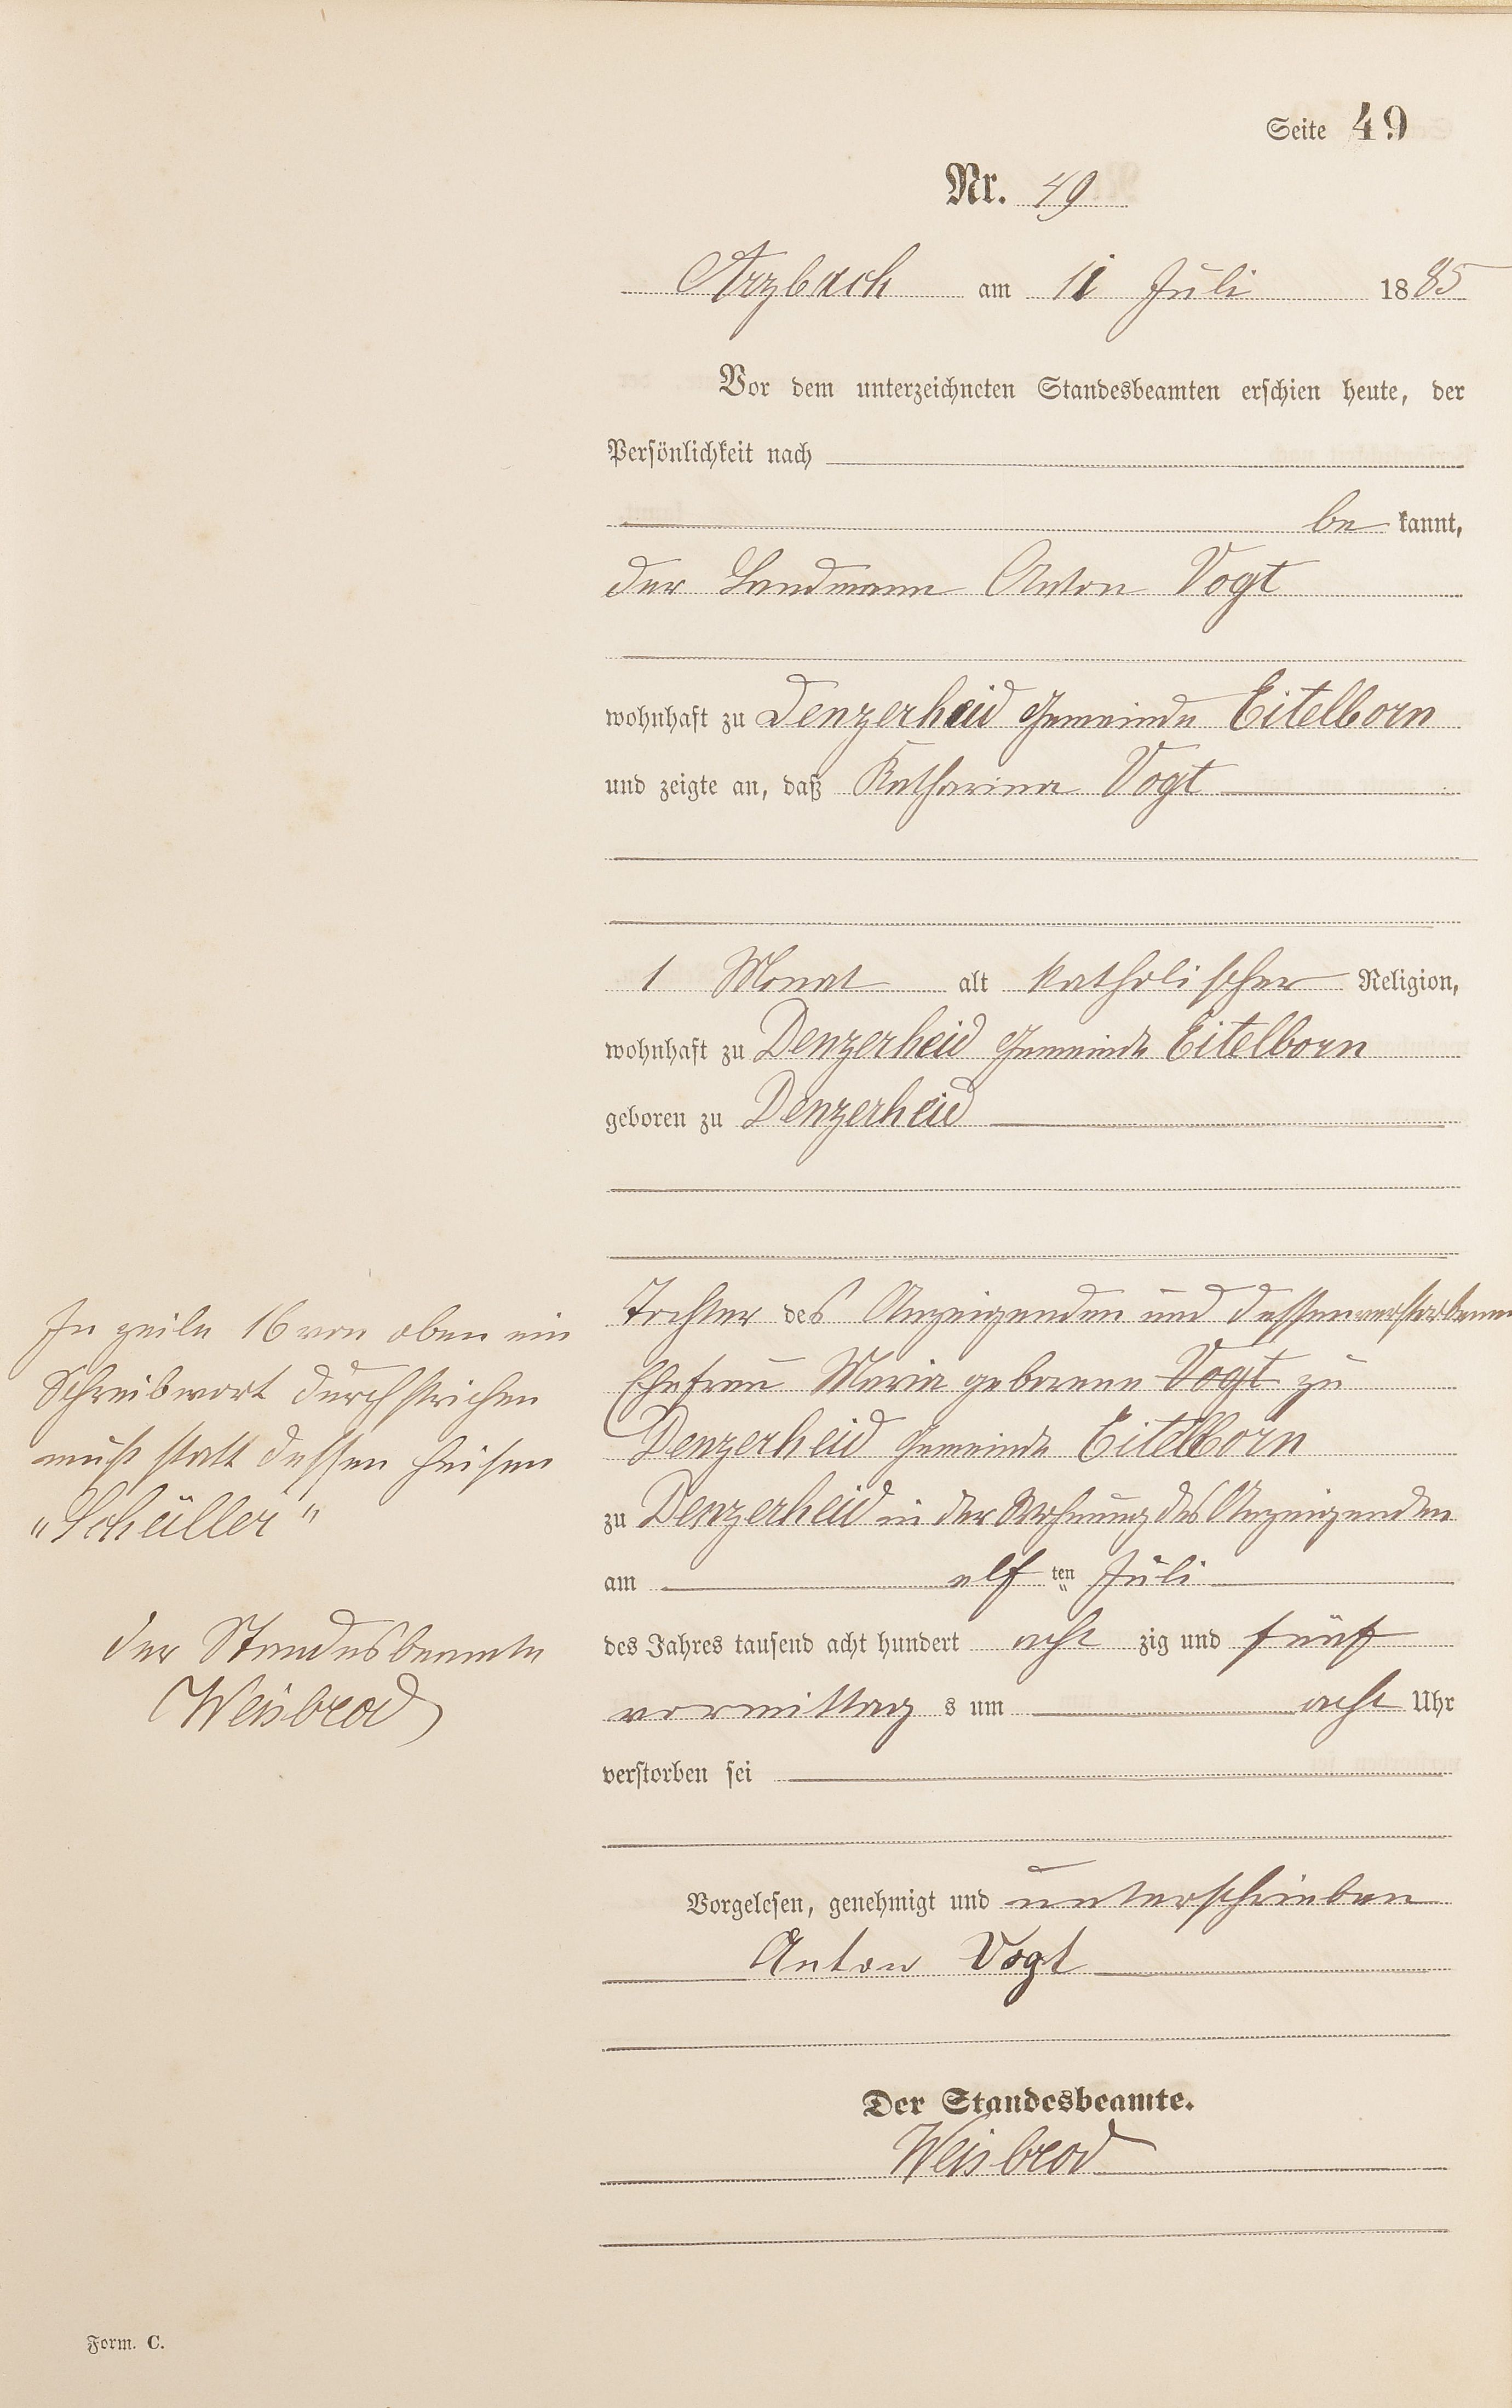 Seite 49
Nr. 49
Arzbach am 11 Juli 1885
Vor dem unterzeichneten Standesbeamten erschien heute, der
Persönlichkeit nach
be kannt,
der Landmann Anton Vogt
wohnhaft zu Denzerheid Gemeinde Eitelborn
und zeigte an, daß Katharina Vogt
1 Monat alt katholischer Religion,
wohnhaft zu Denzerheid Gemeinde Eitelborn
geboren zu Denzerheid
Tochter des Anzeigenden und dessen verstorbenen
Ehefrau Maria geborene Vogt zu
Denzerheid Gemeinde Eitelborn
zu Denzerheid in der Wohnung des Anzeigenden
am elf ten Juli
des Jahres tausend acht hundert acht zig und fünf
vormittag s um acht Uhr
verstorben sei
Vorgelesen, genehmigt und unterschrieben
Anton Vogt
Der Standesbeamte.
Weisbrod
In Zeile 16 von oben ein
Schreibwort durchstrichen
muß statt dessen heisen
„Schüller"
der Standesbeamte
Weisbrod
Form. C.